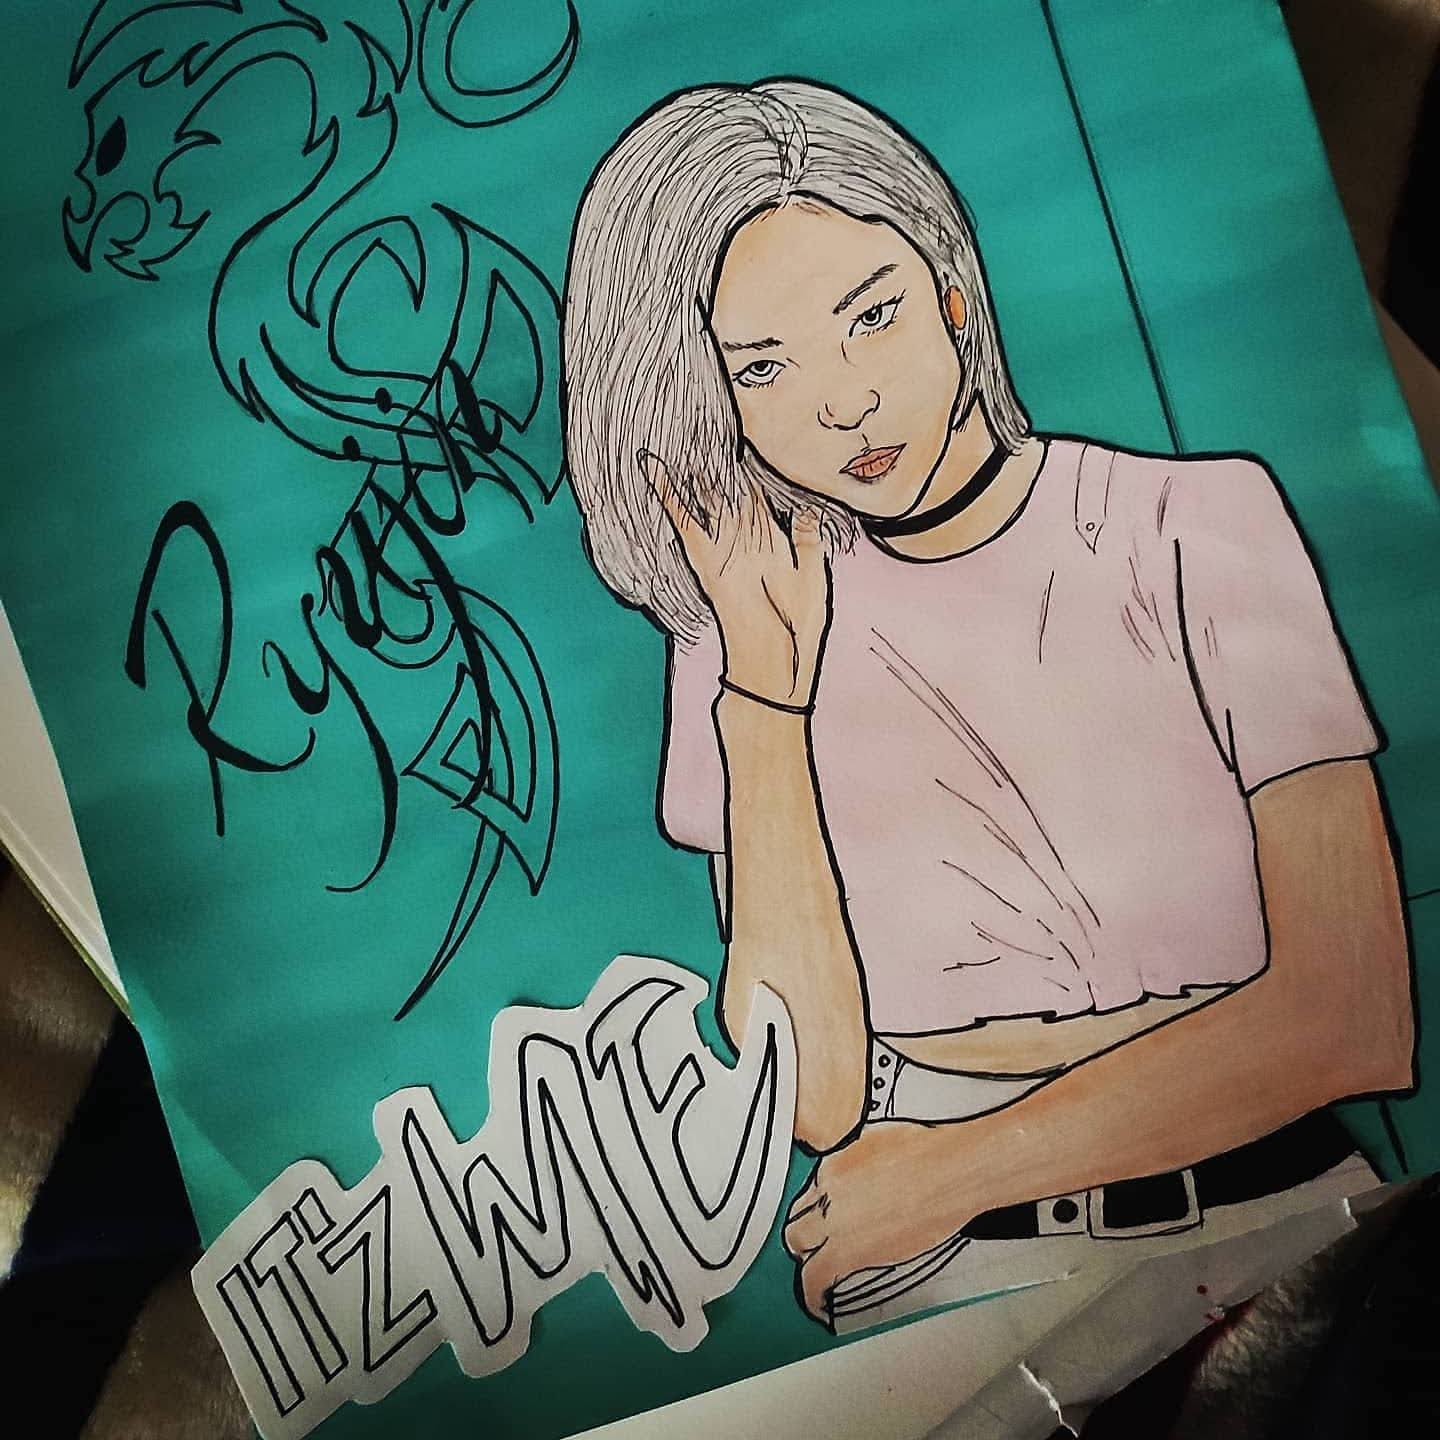 Ryujin
IT'z ME